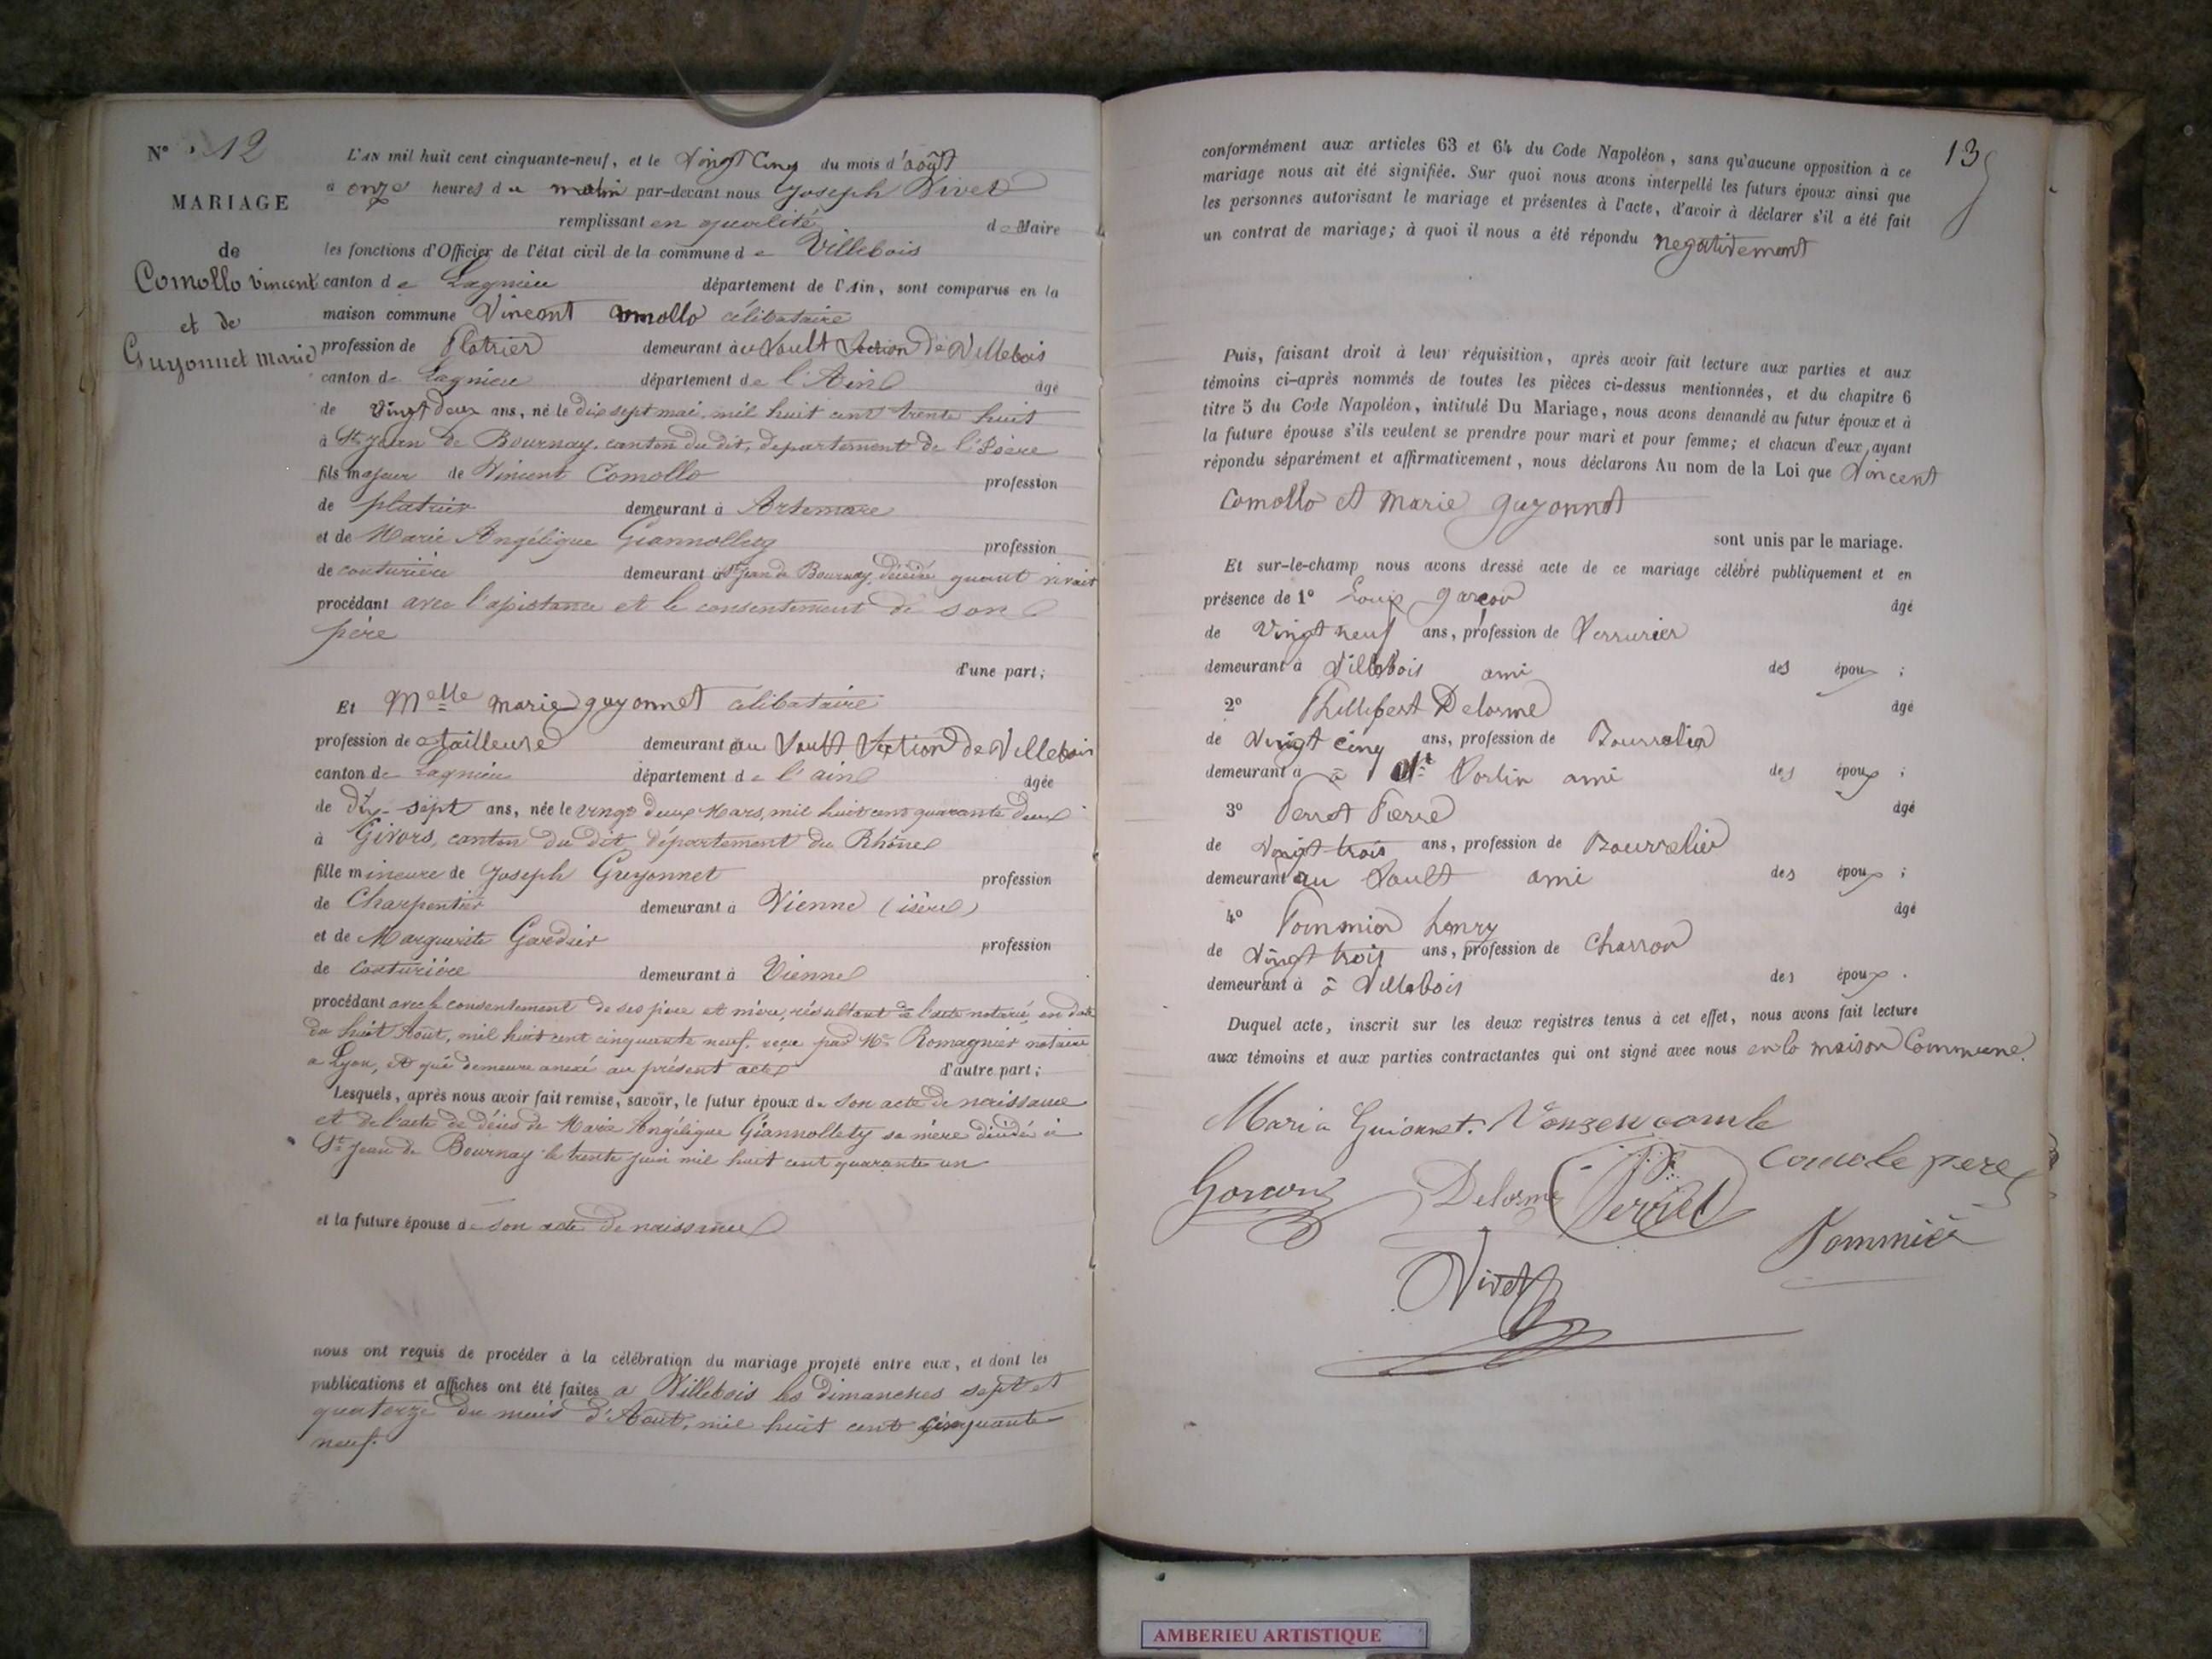 N° 12
MARIAGE
de
Comollo Vincent
et de
Guyonnet Marie
L'AN mil huit cent cinquante-neuf, et le Vingt Cinq du mois d'août
à onze heures du matin par-devant nous Joseph Vivet
remplissant en qualité de Maire
les fonctions d'Officier de l'état civil de la commune de Villebois
canton de Lagnieu département de l'Ain, sont comparus en la
maison commune Vincent Comollo célibataire
profession de Platrier demeurant au Sault Section de Villebois
canton de Lagnieu département de l'Ain âgé
de Vingt deux ans, né le dix sept mai mil huit cent trente huit
à St Jean de Bournay, canton du dit, departement de l'Isère
fils majeur de Vincent Comollo profession
de platrier demeurant à Artemare
et de Marie Angélique Giannollety profession
de couturière demeurant à St Jean de Bournay, décédé quant vivait
procédant avec l'assistance et le consentement de son
père
d'une part;
Et Melle Marie guyonnet célibataire
profession de tailleuse demeurant au Sault Section de Villebois
canton de Lagnieu département de l'ain âgée
de dix-sept ans, née le vingt deux Mars, mil huit cent quarante deux
à Givors, canton du dit, département du Rhône
fille mineure de Joseph Guyonnet profession
de Charpentier demeurant à Vienne (isère)
et de Marguerite profession
de couturière demeurant à Vienne
procédant avec le consentement de ses père et mère, résultant de l'acte notarié, en date
du huit Août, mil huit cent cinquante neuf, reçu par Me Romagnier notaire
a Lyon, et qui demeure anexé au présent acte d'autre part;
Lesquels, après nous avoir fait remise, savoir, le futur époux de son acte de naissance
et de l'acte de décès de Marie Angélique Giannollety sa mère décédée à
St Jean de Bournay le trente juin mil huit cent quarante un
et la future épouse de son acte de naissance
nous ont requis de procéder à la célébration du mariage projeté entre eux, et dont les
publications et affiches ont été faites a Villebois les dimanches sept et
quatorze du mois d'Août, mil huit cent cinquante
neuf.
13
conformément aux articles 63 et 64 du Code Napoléon, sans qu'aucune opposition à ce
mariage nous ait été signifiée. Sur quoi nous avons interpellé les futurs époux ainsi que
les personnes autorisant le mariage et présentes à l'acte, d'avoir à déclarer s'il a été fait
un contrat de mariage; à quoi il nous a été répondu negativement
Puis, faisant droit à leur réquisition, après avoir fait lecture aux parties et aux
témoins ci-après nommés de toutes les pièces ci-dessus mentionnées, et du chapitre 6
titre 5 du Code Napoléon, intitulé Du Mariage, nous avons demandé au futur époux et à
la future épouse s'ils veulent se prendre pour mari et pour femme; et chacun d'eux, ayant
répondu séparément et affirmativement, nous déclarons Au nom de la Loi que Vincent
Comollo et Marie guyonnet
sont unis par le mariage.
Et sur-le-champ nous avons dressé acte de ce mariage célébré publiquement et en
présence de 1° Louis garçon âgé
de Vingt neuf ans, profession de Serrurier
demeurant à Villebois ami des époux ;
2° Phillipert Delorme âgé
de Vingt cinq ans, profession de Bourrelier
demeurant à à St Sorlin ami des époux ;
3° Perret Pierre âgé
de Vingt trois ans, profession de Bourrelier
demeurant au Sault ami des époux ;
4° Pommier henry âgé
de Vingt trois ans, profession de Charron
demeurant à à Villebois des époux .
Duquel acte, inscrit sur les deux registres tenus à cet effet, nous avons fait lecture
aux témoins et aux parties contractantes qui ont signé avec nous en la maison Commune.
Maria Guionnet. Vonzen comle
Comole pere
Garcon Delorme P. Perret
Pommier
Vivet
AMBERIEU ARTISTIQUE